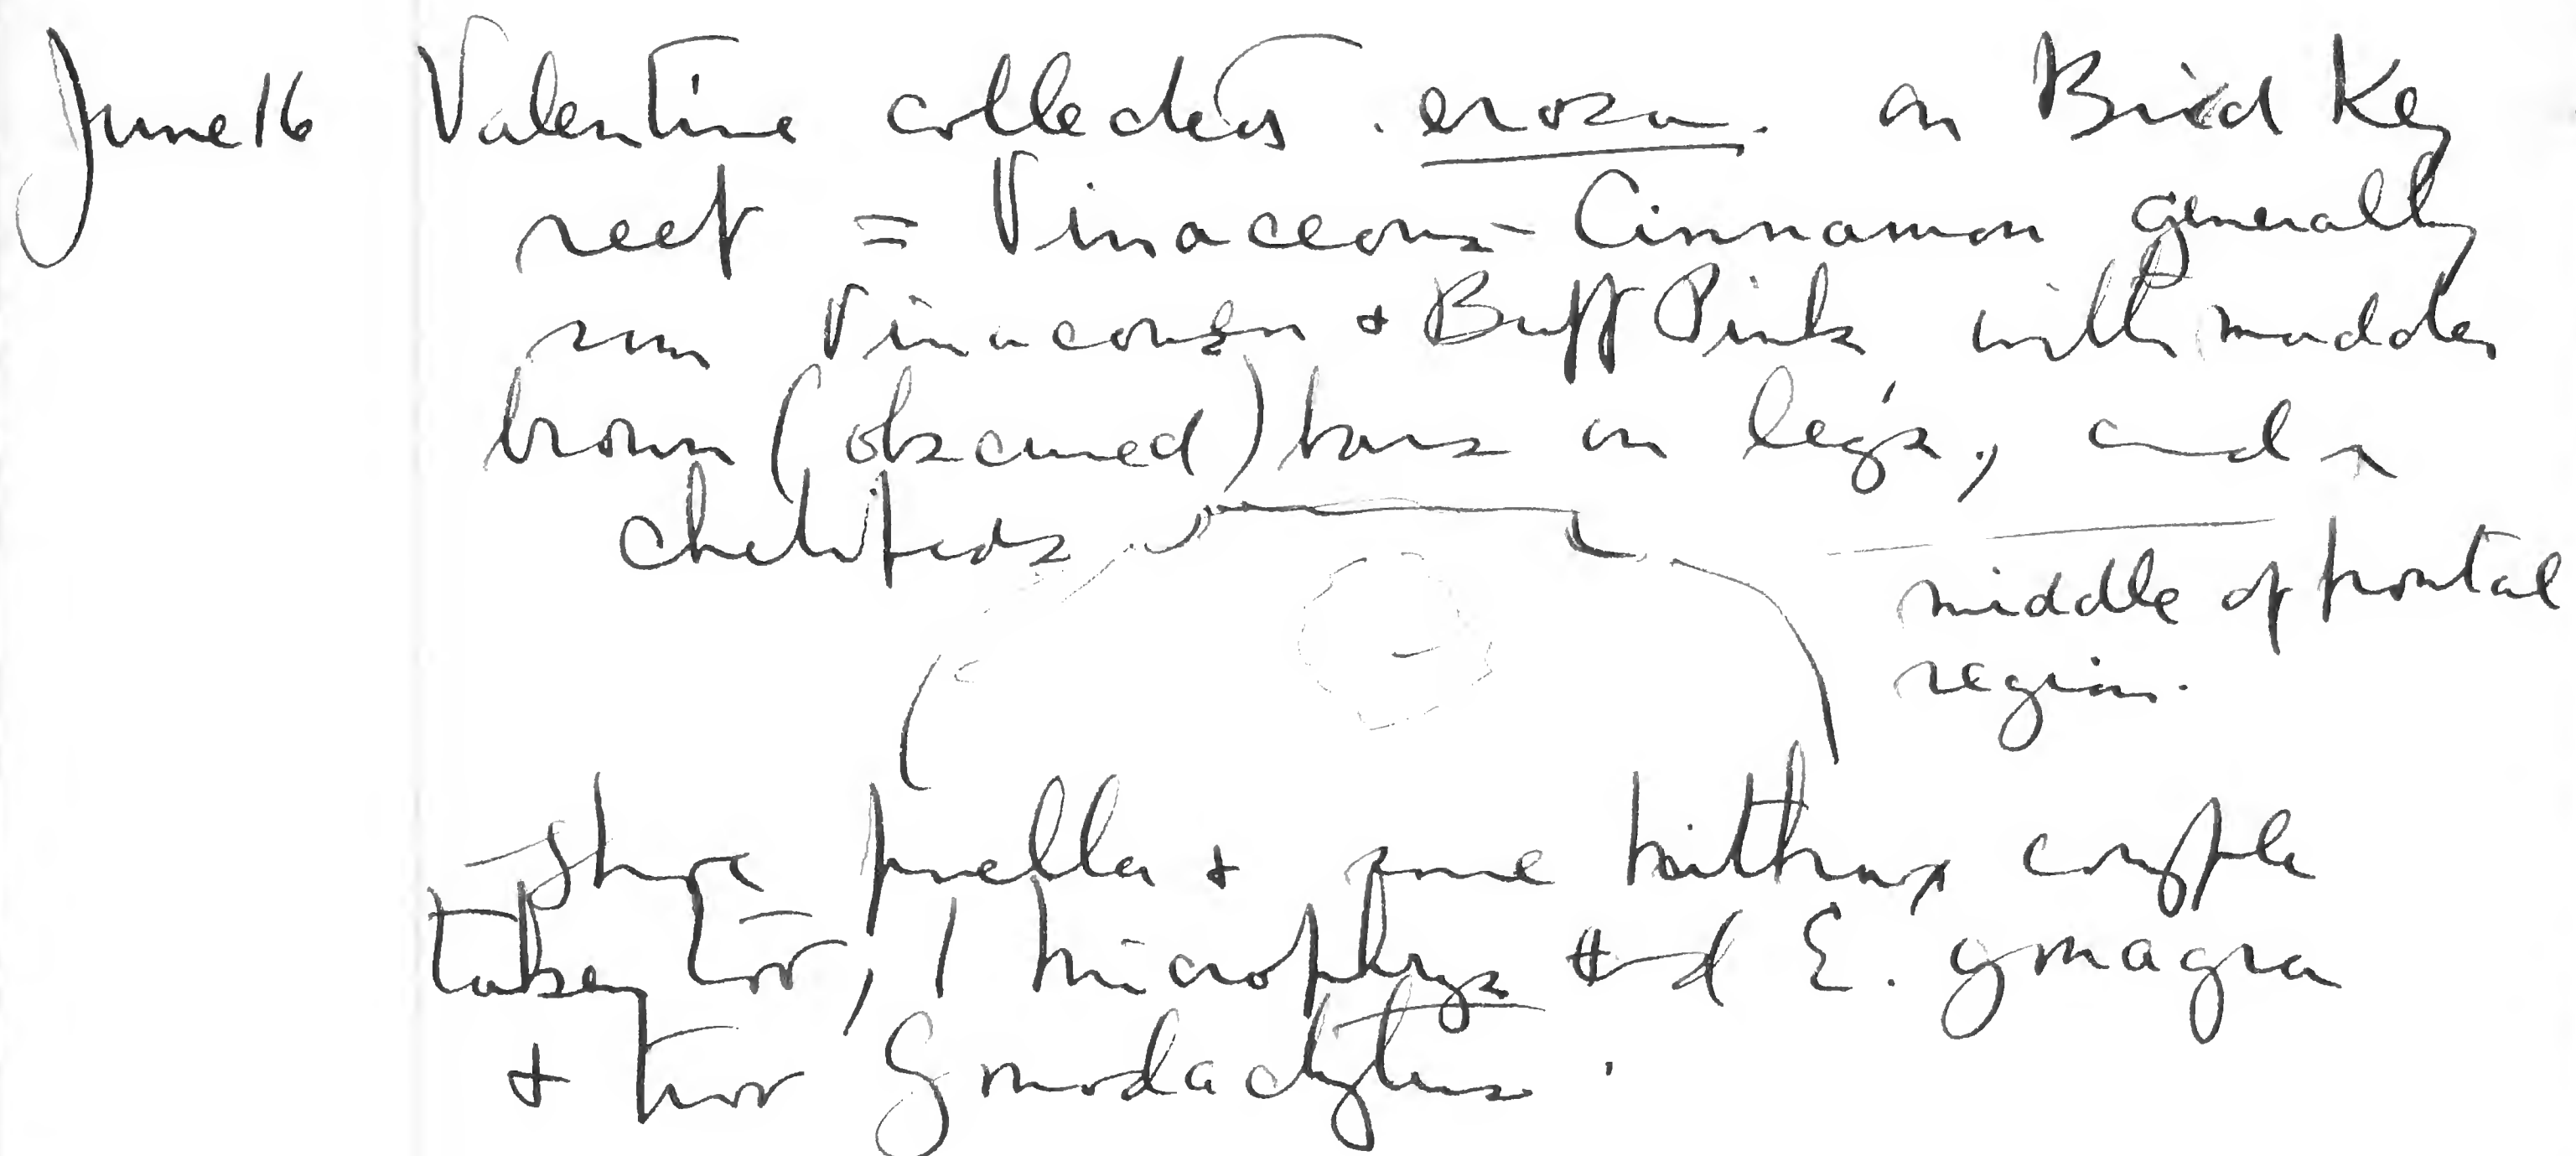 June 16 Valentine collected erosa on Bird Key
reef = Vinaceous-Cinnamon generally
Vinaceous + Buff Pink with madder
brown (obscured) bars on legs, and
chelipeds
middle of frontal
region.
puella + some mithrax couple
taken too, 1 microphrys and E. gmagra
+ two Gmodactylus.